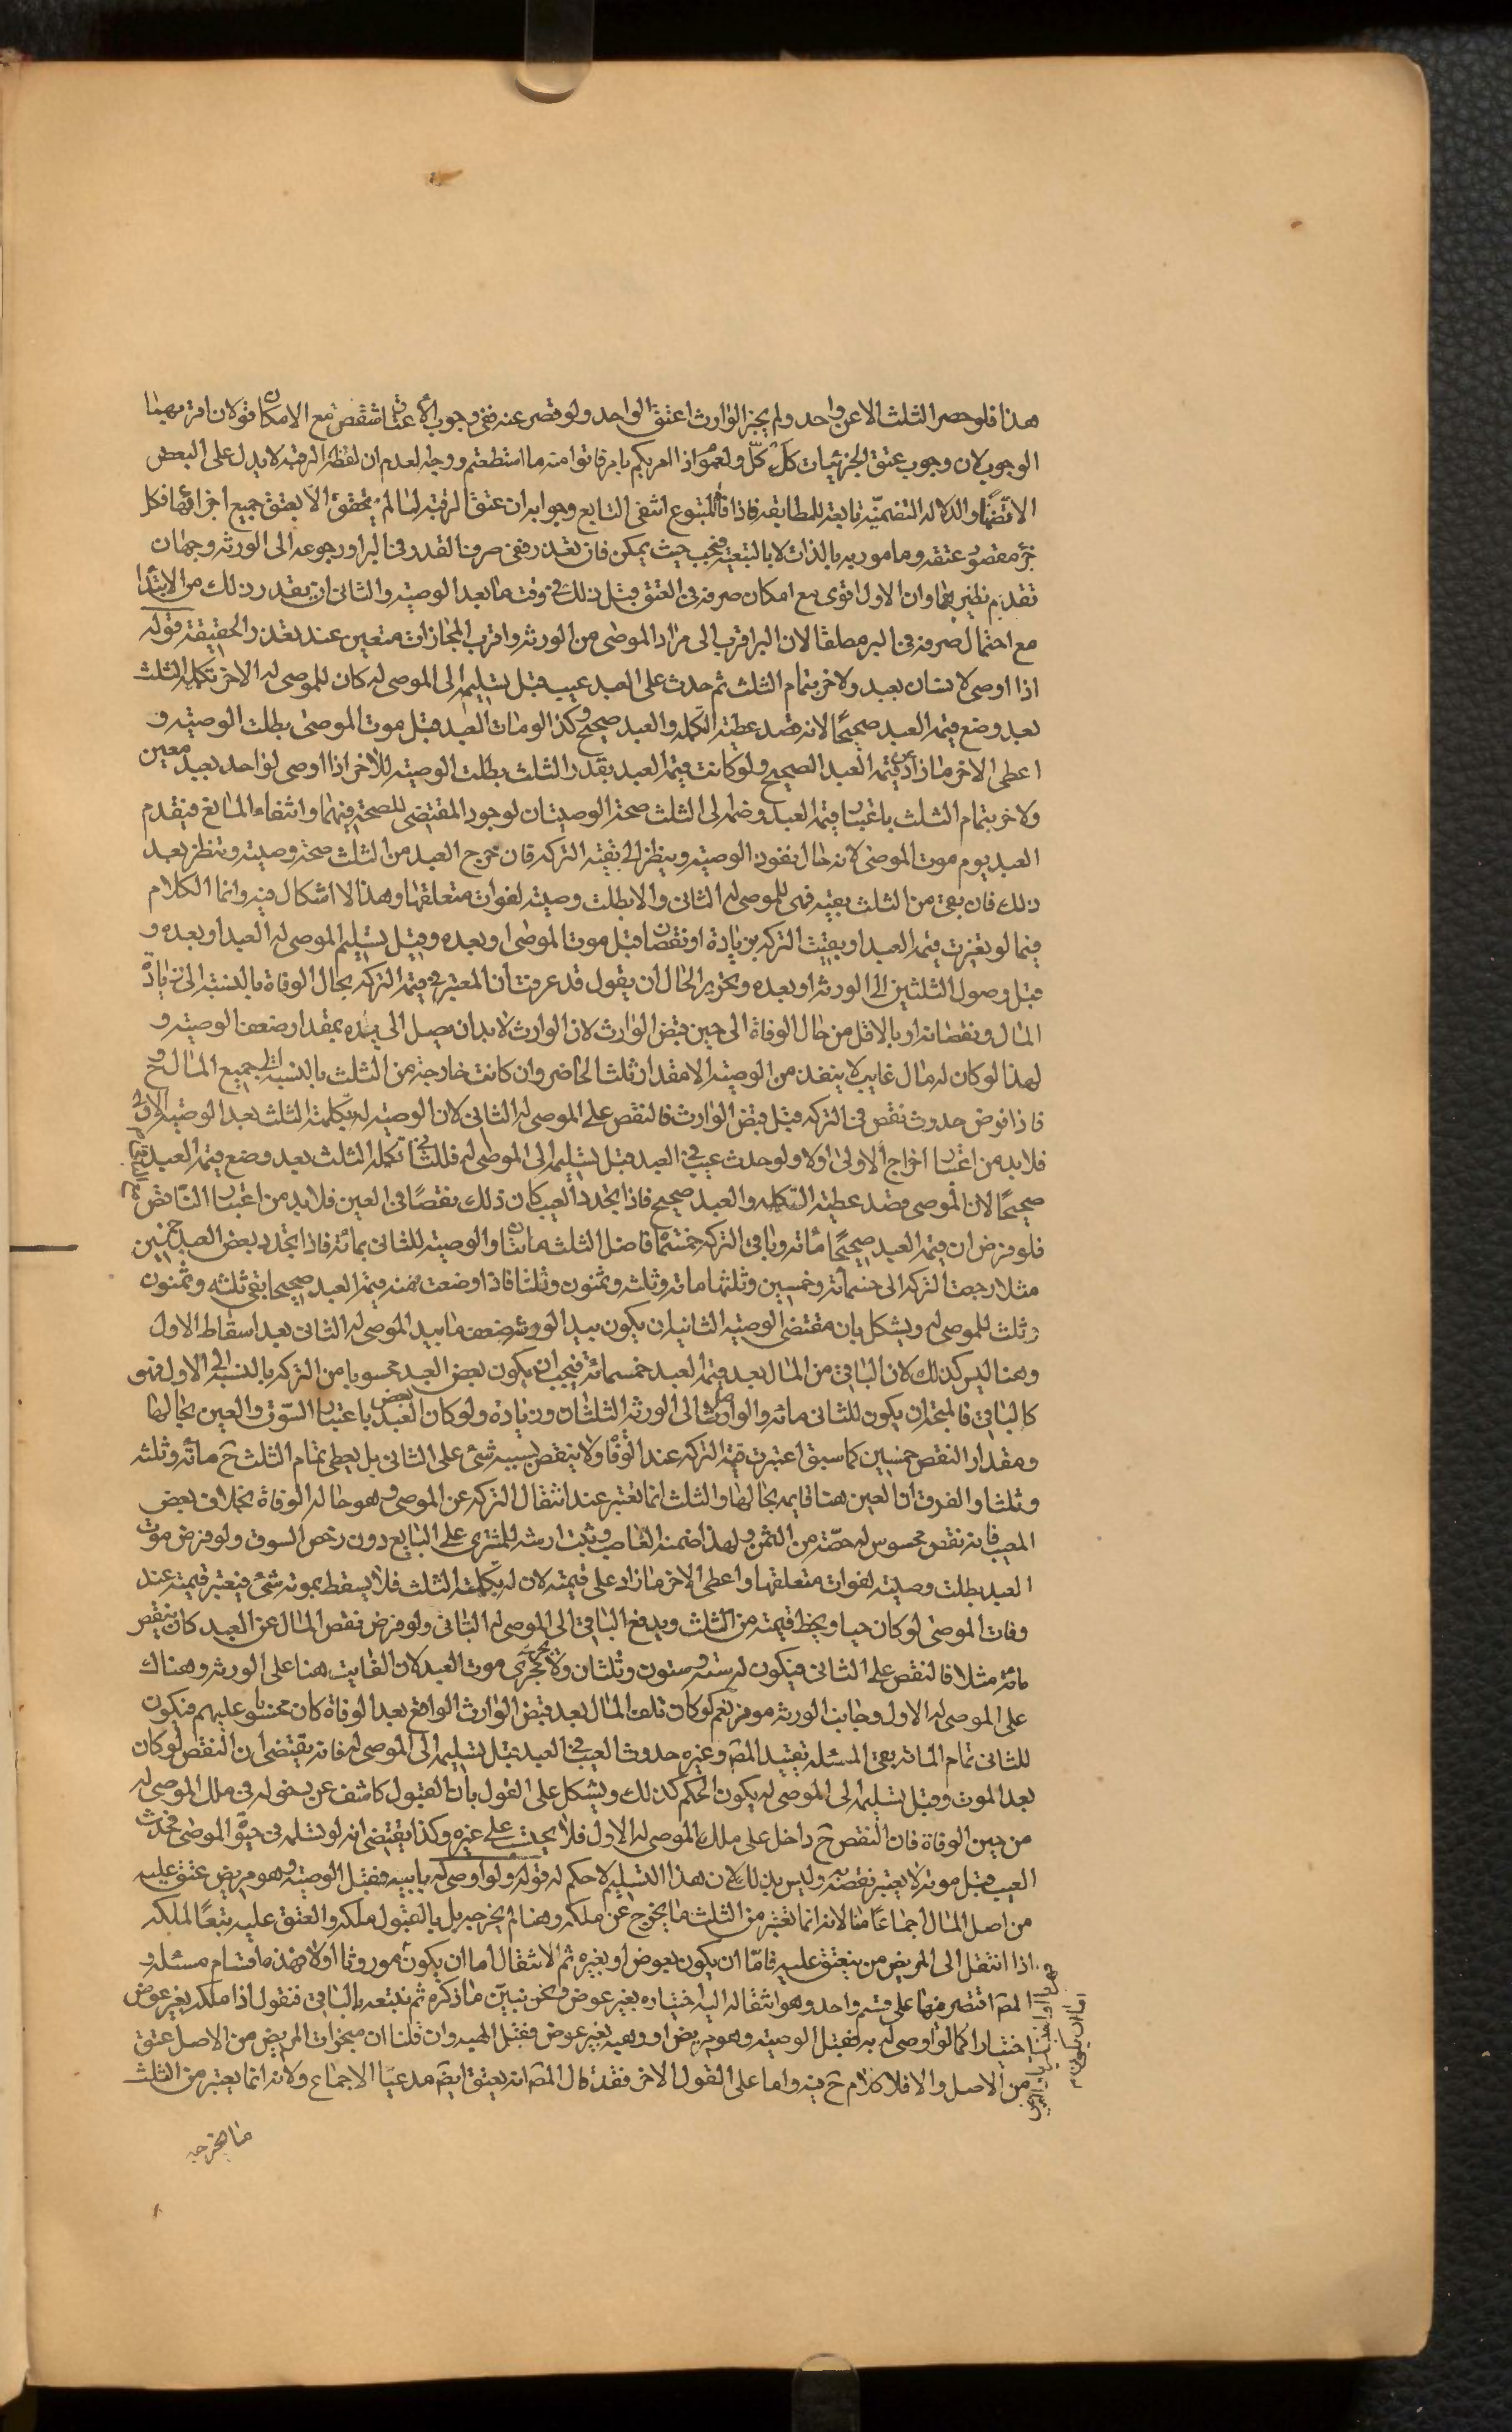 هذا فلو حصر الثلث الا عن واحد ولم يجز الوارث اعتق الواحد ولو قصر عنه ففي وجوب الاعتاق شقص مع الامكان قولان اقربهما
الوجوب لان وجوب عتق الجزئيات كل كل ولعموم اذا امرتكم بامر فاتوا منه ما استطعتم ووجه العدم ان لفظة الرقبة لا يدل على البعض
الا تضمنا والدلالة التضمنية تابعة للمطابقة فاذا فات المتبوع انتفى التابع وجوابه ان عتق الرقبة لما لم يتحقق الا بعتق جميع اجزائها فكل
جزء مقصود عتقه ومامور به بالذات لا بالتبعية فيجب حيث يمكن فان تعذر ففي صرف القدر في البر او رجوعه الى الورثة وجهان
تقدم نظيرهما وان الاول اقوى مع امكان صرفه في العتق قبل ذلك في وقت ما بعد الوصية والثاني ان تعذر ذلك من الابتداء
مع احتمال صرفه في البر مطلقا لان البر اقرب الى مراد الموصى من الورثة واقرب المجازات متعين عند تعذر الحقيقة قوله
اذا اوصى لانسان بعبد ولاخر بتمام الثلث ثم حدث على العبد عيب قبل تسليمه الى الموصى له كان للموصى له الاخر تكملة الثلث
بعد وضع قيمة العبد صحيحًا لانه قصد عطية التكملة والعبد صحيح وكذا لو مات العبد قبل موت الموصى بطلت الوصية و
اعطى الاخر ما زاد عن قيمة العبد الصحيح ولو كانت قيمة العبد بقدر الثلث بطلت الوصية للاخر اذا اوصى لواحد بعبد معين
ولاخر بتمام الثلث باعتبار قيمة العبد وضمه الى الثلث صحت الوصيتان لوجود المقتضى للصحة فيهما وانتفاء المانع فيقدم
العبد يوم موت الموصى لانه حال نفوذ الوصية وينظر الى بقية التركة فان خرج العبد من الثلث صحت وصيته وينظر بعد
ذلك فان بقى من الثلث بقية فهى للموصى له الثاني والا بطلت وصيته لفوات متعلقها وهذا لا اشكال فيه وانما الكلام
فيما لو تغيرت قيمة العبد او بقيت التركة بزيادة او نقصان قبل موت الموصى او بعده وقبل تسليم الموصى له العبد او بعده و
قبل وصول الثلثين الى الورثة او بعده وتحرير الحال ان يقول قد عرفت ان المعتبر في قيمة التركة بحال الوفاة بالنسبة الى زيادة
المال ونقصانه او بالاقل من حال الوفاة الى حين قبض الوارث لان الوارث لا بد ان يصل الى يده بمقدار ضعف الوصية و
لهذا لو كان له مال غايب لا ينفذ من الوصية الا مقدار ثلث الحاضر وان كانت خارجة من الثلث بالنسبة الى جميع المال وح
فاذا فرض حدوث نقص في التركة قبل قبض الوارث فالنقص على الموصى له الثاني لان الوصية له بتكملة الثلث بعد الوصية الاولى
فلا بد من اعتبار اخراج الاولى اولا ولو حدث عيب في العبد قبل تسليمه الى الموصى له فللثاني تكملة الثلث بعد وضع قيمة العبد
صحيحًا لان الموصى قصد عطية التكملة والعبد صحيح فاذا تجدد العيب كان ذلك نقصًا في العين فلا بد من اعتبار الناقص
فلو فرض ان قيمة العبد صحيحًا مائة وباقى التركة خمسمائة فاصل الثلث مائتان والوصية للثاني بمائة فاذا تجدد بعض العبد خمسين
مثلا رجعت التركة الى خمسمائة وخمسين وثلثها مائة وثلثة وثمنون وثلثا فاذا وضعت منه قيمة العبد صحيحا بقى ثلثة وثمنون
وثلث للموصى له ويشكل بان مقتضى الوصية الثانية ان يكون بيد الورثة ضعف ما بيد الموصى له الثاني بعد اسقاط الاول
وهنا ليس كذلك لان الباقى من المال بعد قيمة العبد خمسمائة فيجب ان يكون بعض العبد محسوبا من التركة بالنسبة الى الاول فهو
كالباقي فالمتجه ان يكون للثاني مائة والواصل الى الورثة الثلثان وزيادة ولو كان بعض العبد باعتبار السوق والعين بحالها
ومقدار النقص خمسين كما سبق اعتبرت قيمة التركة عند الوفاة ولا ينقص بسببه شئ على الثاني بل يعطى تمام الثلث ح مائة وثلثه
وثلثا والفرق ان العين هنا قايمة بحالها والثلث انما تعتبر عند انتقال التركة عن الموصى وهو حالة الوفاة بخلاف بعض
المعيب فانه نقص محسوس له حصة من الثمن ولهذا ضمنه الغاصب وثبت ارشه للمشترى على البايع دون رخص السوق ولو فرض موت
العبد بطلت وصيته لفوات متعلقها واعطى الاخر ما زاد على قيمته لان له تكملة الثلث فلا يسقط بموته شئ فيعتبر قيمته عند
وفات الموصى لو كان حيا ويحط قيمته من الثلث ويدفع الباقي الى الموصى له الثاني ولو فرض نقص المال عن العبد كان ينقص
مائة مثلا فالنقص على الثاني فيكون له ستة وستون وثلثان ولا يجرى مجرى موت العبد لان الفايت هنا على الورثة وهناك
على الموصى له الاول وجانب الورثة موفر نعم لو كان تلف المال بعد قبض الوارث الواقع بعد الوفاة كان محسوبا عليهم فيكون
للثاني تمام المائة بقى المسئلة تقييد المص وغيره حدوث العيب في العبد قبل تسليمه الى الموصى له فانه يقتضى ان النقص لو كان
بعد الموت وقبل تسليمه الى الموصى له يكون الحكم كذلك ويشكل على القول بان القبول كاشف عن دخوله في ملك الموصى له
من حين الوفاة فان النقص ح داخل على ملك الموصى له الاول فلا يحتسب على غيره وكذا يقتضى انه لو تسلمه في حيوة الموصى فحدث
العيب قبل موته لا يعتبر نقصه وليس بذلك لان هذا التسليم لا حكم له قوله ولو اوصى له بابيه فقبل الوصية وهو مريض عتق عليه
من اصل المال اجماعًا منا لانه انما تعتبر من الثلث ما يخرج عن ملكه وهنا لم يخرجه بل بالقبول ملكه والعتق عليه بتعًا لملكه
اذا انتقل الى المريض من ينعتق عليه فاما ان يكون بعوض او بغيره ثم الانتقال اما ان يكون موروثا اولا فهذه اقسام مسئلة و
المص اقتصر منها على قسم واحد وهو انتقاله اليه اختياره بغير عوض ونحن نبين ما ذكره ثم نتبعه بالباقي فنقول اذا ملكه بغير عوض
اختيارا كما لو اوصى له به فقبل الوصية وهو مريض او وهبه بغير عوض فقبل الهبة وان قلنا ان منجزات المريض من الاصل عتق
من الاصل والا فلا كلام ح فيه واما على القول الاخر فقد قال المص انه يعتق ايضا مدعيا الاجماع ولانه انما يعتبر من الثلث
ما يخرجه